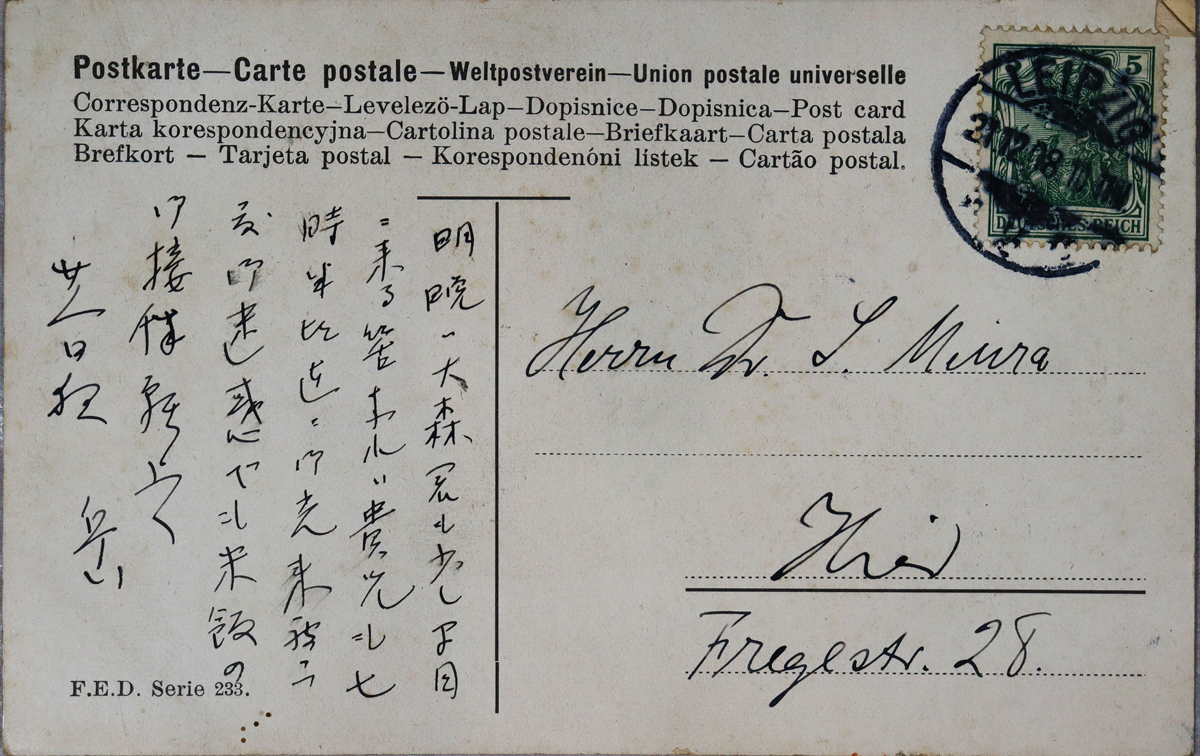 Postkarte—Carte postale—Weltpostverein—Union postale universelle
Correspondenz-Karte—Levelezö-Lap—Dopisnice—Dopisnica—Post card
Karta korespondencyjna—Cartolina postale—Briefkaart—Carta postala
Brefkort — Tarjeta postal — Korespondenóni lístek — Cartão postal.
LEIPZIG
5
DEUTSCHES REICH
Herrn Dr. S. Miura
Hier
Fregestr. 28.
明晩ハ大森君モ少し早目
ニ来る筈なれハ貴兄モ七
時半比迄ニ御光来
御迷惑でモ米飯の
御接伴願上く
廿一日夜
岳山
F.E.D. Serie 233.